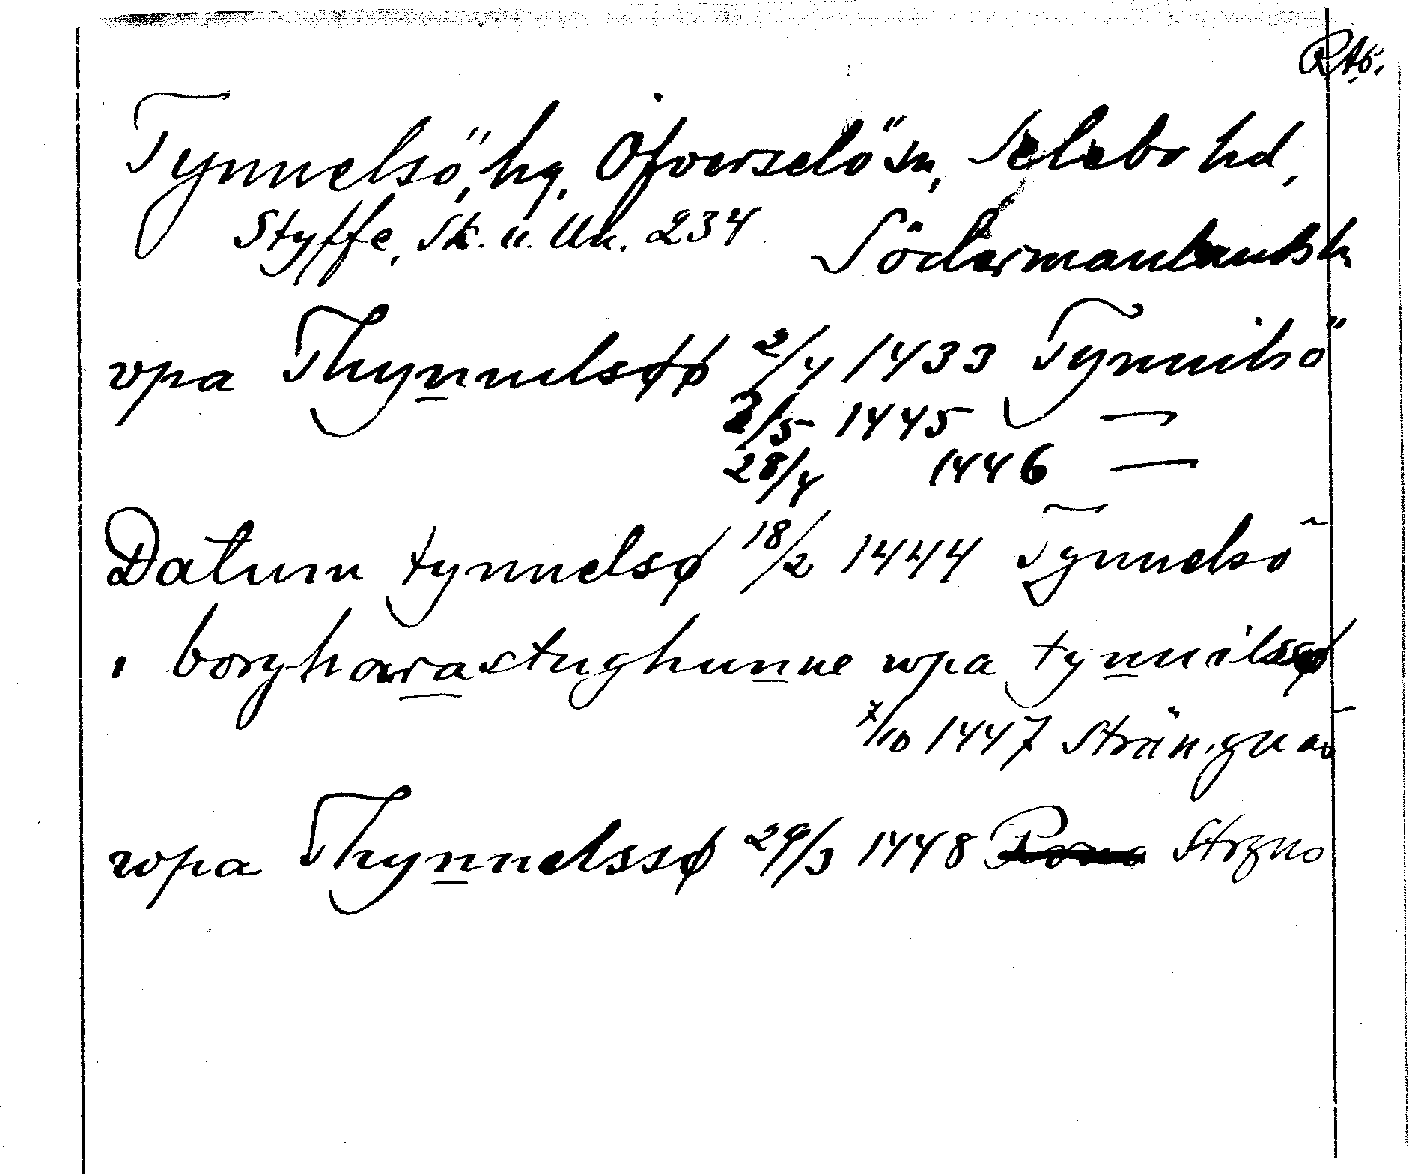 RAp.
Tynnelsö, hg, Öfverselö sn, Selebo hd,
Styffe, Sk. u. Un. 234 Södermanlands l.
vpa Thynnelsøø 2/4 1433 Tynnilsö
2/5 1445 —
28/4 1446 —
Datum tynnelsø 18/2 1444 Tynnelsö
i borgharastughunne wpa tynnilssø
7/10 1447 Strängnäs
wpa Thynnelssø 29/3 1448 Strgns